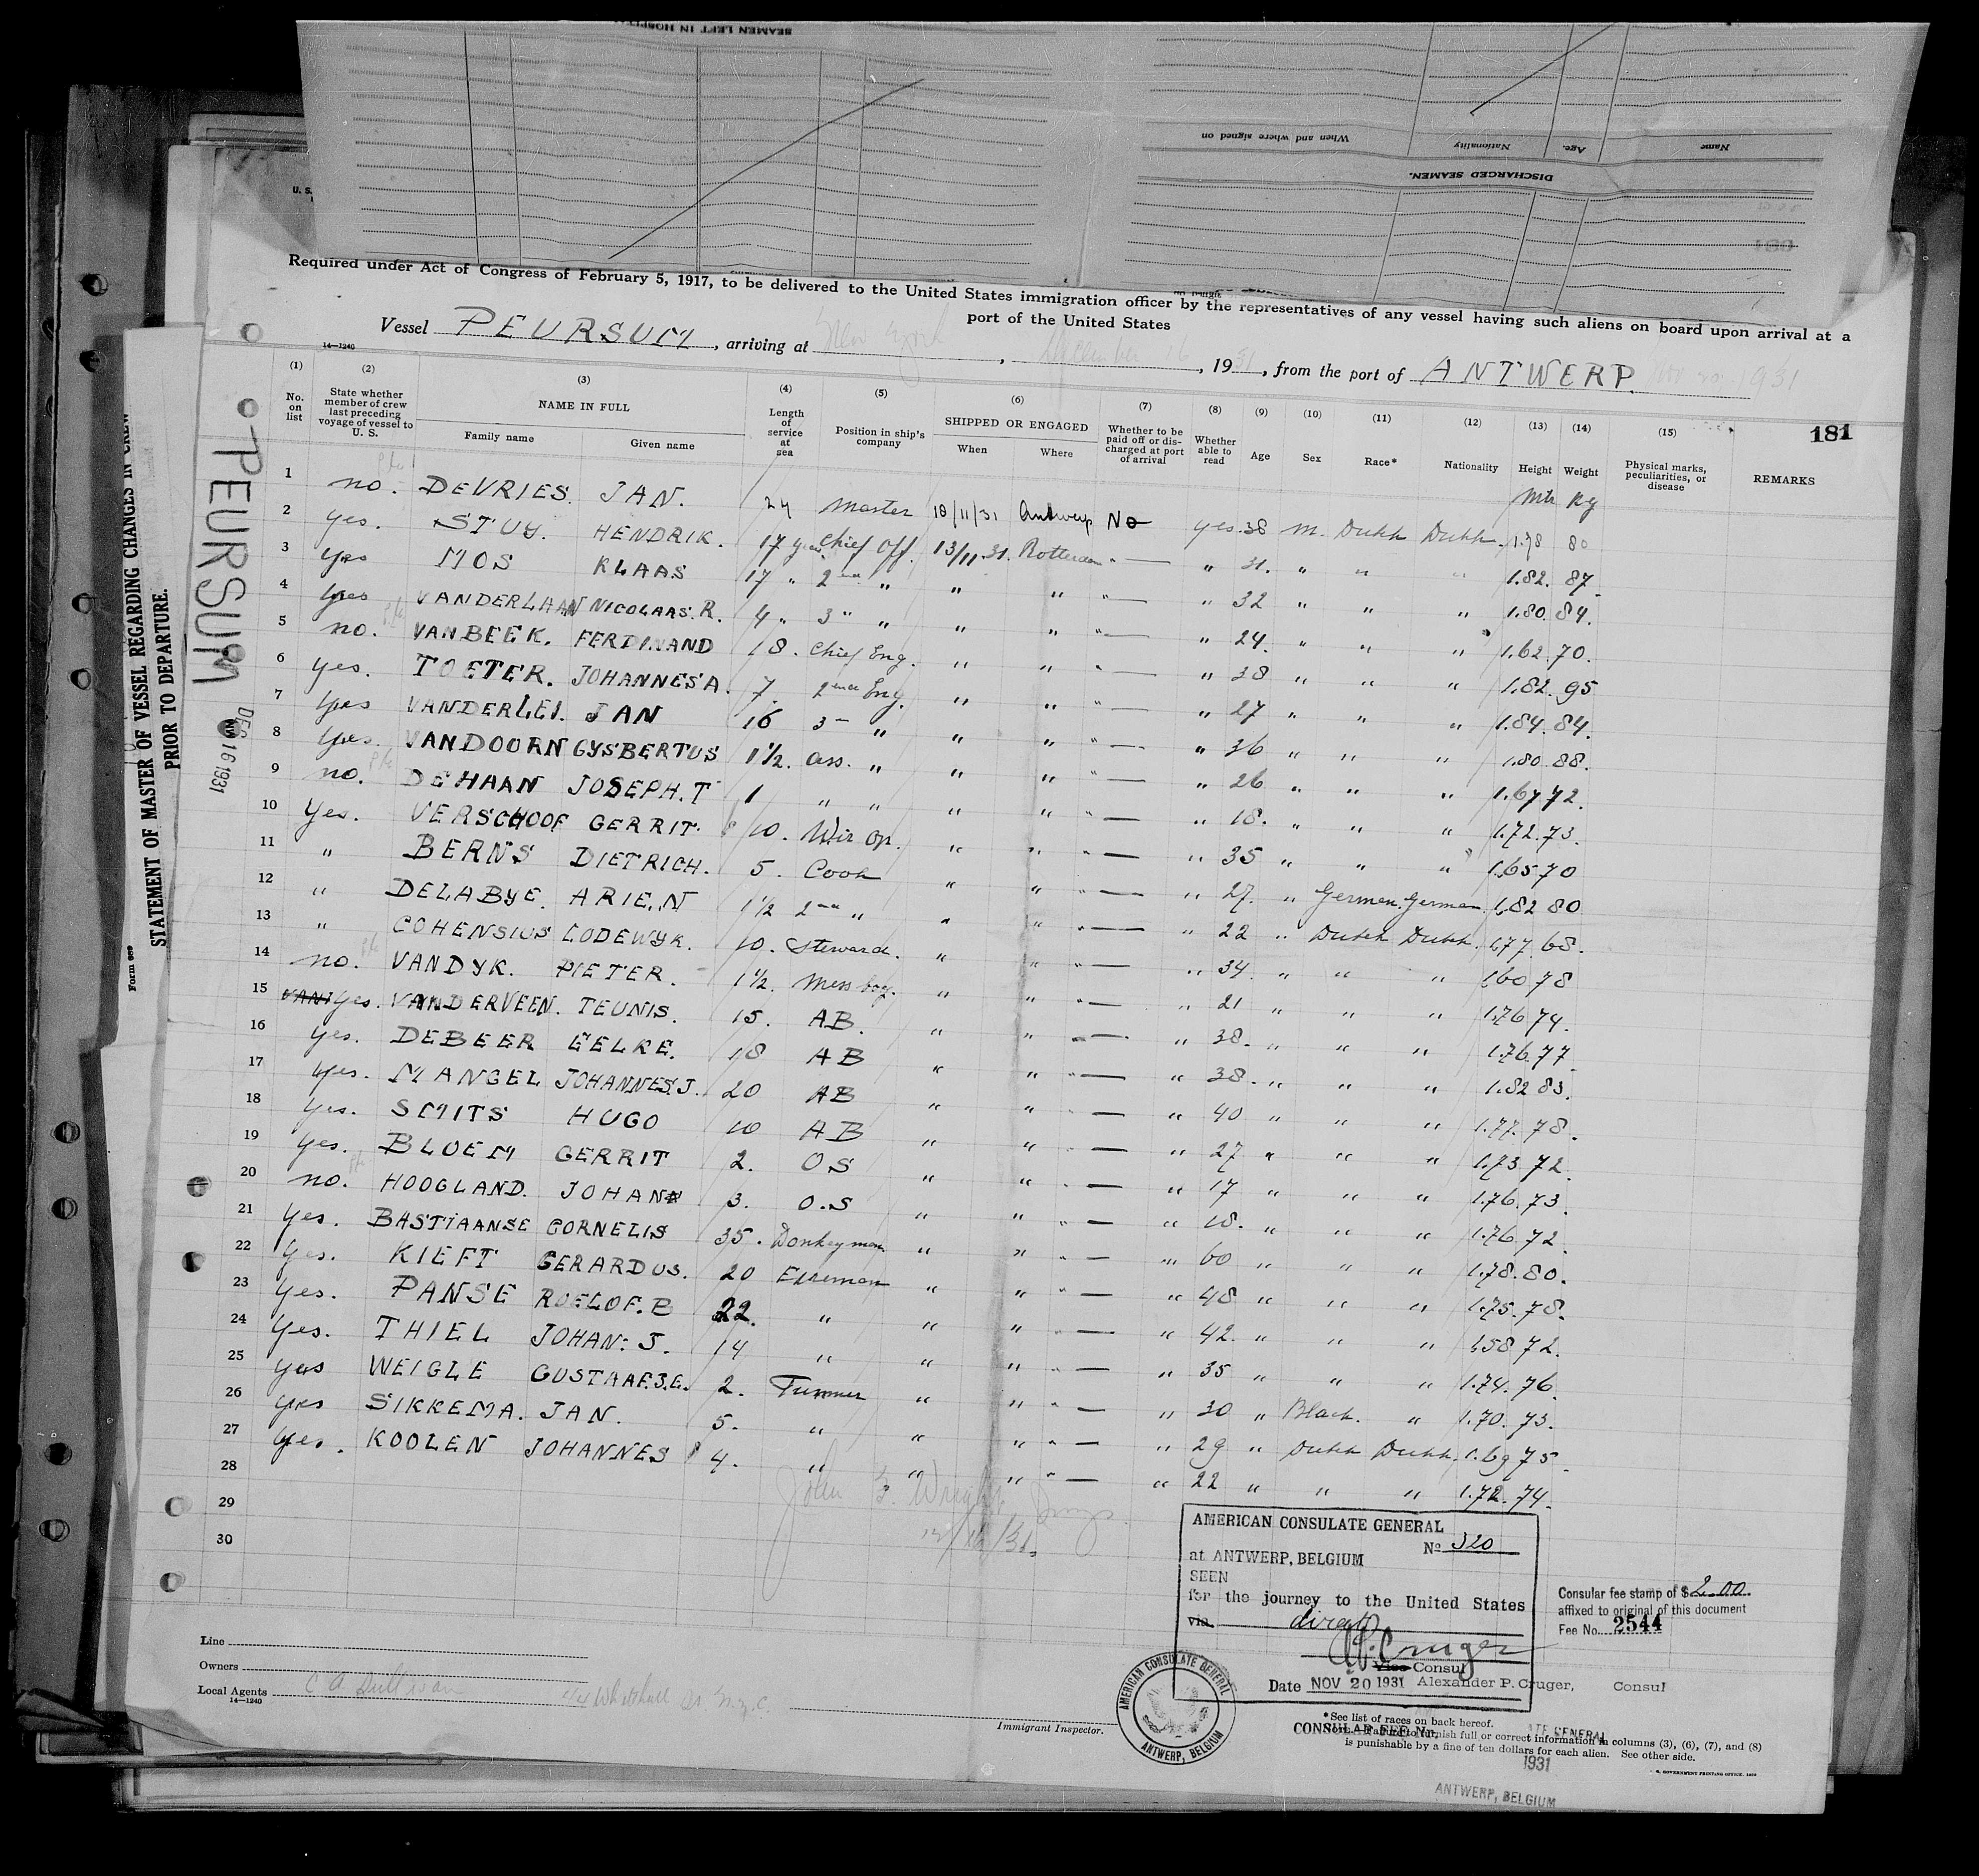 SEAMEN LEFT IN HOSPITAL
When and where signed on
Nationality
Age.
Name
DISCHARGED SEAMEN.
U. S.
Required under Act of Congress of February 5, 1917, to be delivered to the United States immigration officer by the representatives of any vessel having such aliens on board upon arrival at a
port of the United States
Vessel PEURSUM, arriving at New York, December 6, 1931, from the port of ANTWERP. 1931
14—1240
181
(1) No. on list
(2) State whether member of crew last preceding voyage of vessel to U. S.
(3) NAME IN FULL Family name Given name
(4) Length of service at sea
(5) Position in ship's company
(6) SHIPPED OR ENGAGED When Where
(7) Whether to be paid off or discharged at port of arrival
(8) Whether able to read
(9) Age
(10) Sex
(11) Race*
(12) Nationality
(13) Height
(14) Weight
(15) Physical marks, peculiarities, or disease
REMARKS
Mtr Kg
1 no. DEVRIES. JAN. 24 Master 18/11/31 Antwerp No yes. 38 m. Dutch Dutch. 1.78 80
2 yes. STUY. HENDRIK. 17 years chief Off. 13/11.31. Rotterdam " — " 31. " " " 1.82. 87.
3 yes MOS KLAAS 17 " 2nd " " " " — " 32 " " " 1.80. 84.
4 yes VANDERLAAN NICOLAAS. R. 4 " 3 " " " " " — " 24. " " " 1.62. 70.
5 no. VANBEEK. FERDINAND 18. Chief Eng. " " " — " 38 " " " 1.82. 95
6 yes. TOETER. JOHANNES A. 7. 2nd Eng. " " " — " 27 " " " 1.84. 84.
7 yes VANDERLEI. JAN 16 3— " " " " — " 36 " " " 1.80 88.
8 yes. VANDOORN GYSBERTUS 1 1/2. ass. " " " " — " 26 " " " 1.67 72.
9 no. DEHAAN JOSEPH. T 1 " " " " " — " 18. " " " 1.72. 73.
10 Yes. VERSCHOOF GERRIT. 10. Wir Op. " " " — " 35 " " " 1.65 70
11 " BERNS DIETRICH. 5. Cook " " " — " 27. " German. German 1.82 80
12 " DELABYE. ARIE. N 1 1/2 2nd " " " " — " 22 " Dutch Dutch. 1.77. 68.
13 " COHENSIUS LODEWYK. 10. Steward. " " " — " 34. " " " 1.60 78
14 no. VANDYK. PIETER. 1 1/2. Mess boy. " " " — " 21 " " " 1.76. 74.
15 yes. VANDERVEEN. TEUNIS. 15. AB. " " " — " 38. " " " 1.76. 77
16 yes. DEBEER EELKE. 18 AB " " " — " 38. " " " 1.82 83.
17 yes. MANGEL JOHANNES. J. 20 AB " " " — " 40 " " " 1.77. 78.
18 yes. SMITS HUGO 10 AB " " " — " 27 " " " 1.73. 72.
19 yes. BLOEM GERRIT 2. OS " " " — " 17 " " " 1.76. 73.
20 no. HOOGLAND. JOHAN 3. O.S " " " — " 18. " " " 1.76. 72.
21 yes. BASTIAANSE CORNELIS 35. Donkeyman " " " — " 60 " " " 1.78. 80.
22 yes. KIEFT GERARDUS. 20 Fireman " " " — " 48 " " " 1.75. 78.
23 yes. PANSE ROELOF. B 22. " " " " — " 42. " " " 1.58 72.
24 yes. THIEL JOHAN: J. 14 " " " " — " 35 " " " 1.74. 76.
25 yes WEIGLE GUSTAAF. J. E. 2. Trimmer " " " — " 30 " Black. " 1.70. 73.
26 yes SIKKEMA. JAN. 5. " " " " — " 29 " Dutch Dutch. 1.69 75
27 yes. KOOLEN JOHANNES 4. " " " " — " 22 " " " 1.72. 74.
28
29
30
John F. Wright
12/16/31.
AMERICAN CONSULATE GENERAL
No 320
at ANTWERP, BELGIUM
SEEN
for the journey to the United States
via direct
A. P. Cruger
Vice Consul
Date NOV 20 1931 Alexander P. Cruger, Consul
Consular fee stamp of $ 2.00
affixed to original of this document
Fee No. 2544
Line
Owners
Local Agents C A Sullivan 44 Whitehall St N.Y.C.
14—1240
Immigrant Inspector.
AMERICAN CONSULATE GENERAL
ANTWERP, BELGIUM
*See list of races on back hereof.
CONSULAR FEE No.
NOTE.—Failure to furnish full or correct information in columns (3), (6), (7), and (8)
is punishable by a fine of ten dollars for each alien. See other side.
ATE GENERAL
1931
ANTWERP, BELGIUM
PEURSUM
DEC 16 1931
STATEMENT OF MASTER OF VESSEL REGARDING CHANGES IN CREW
PRIOR TO DEPARTURE.
Form 689